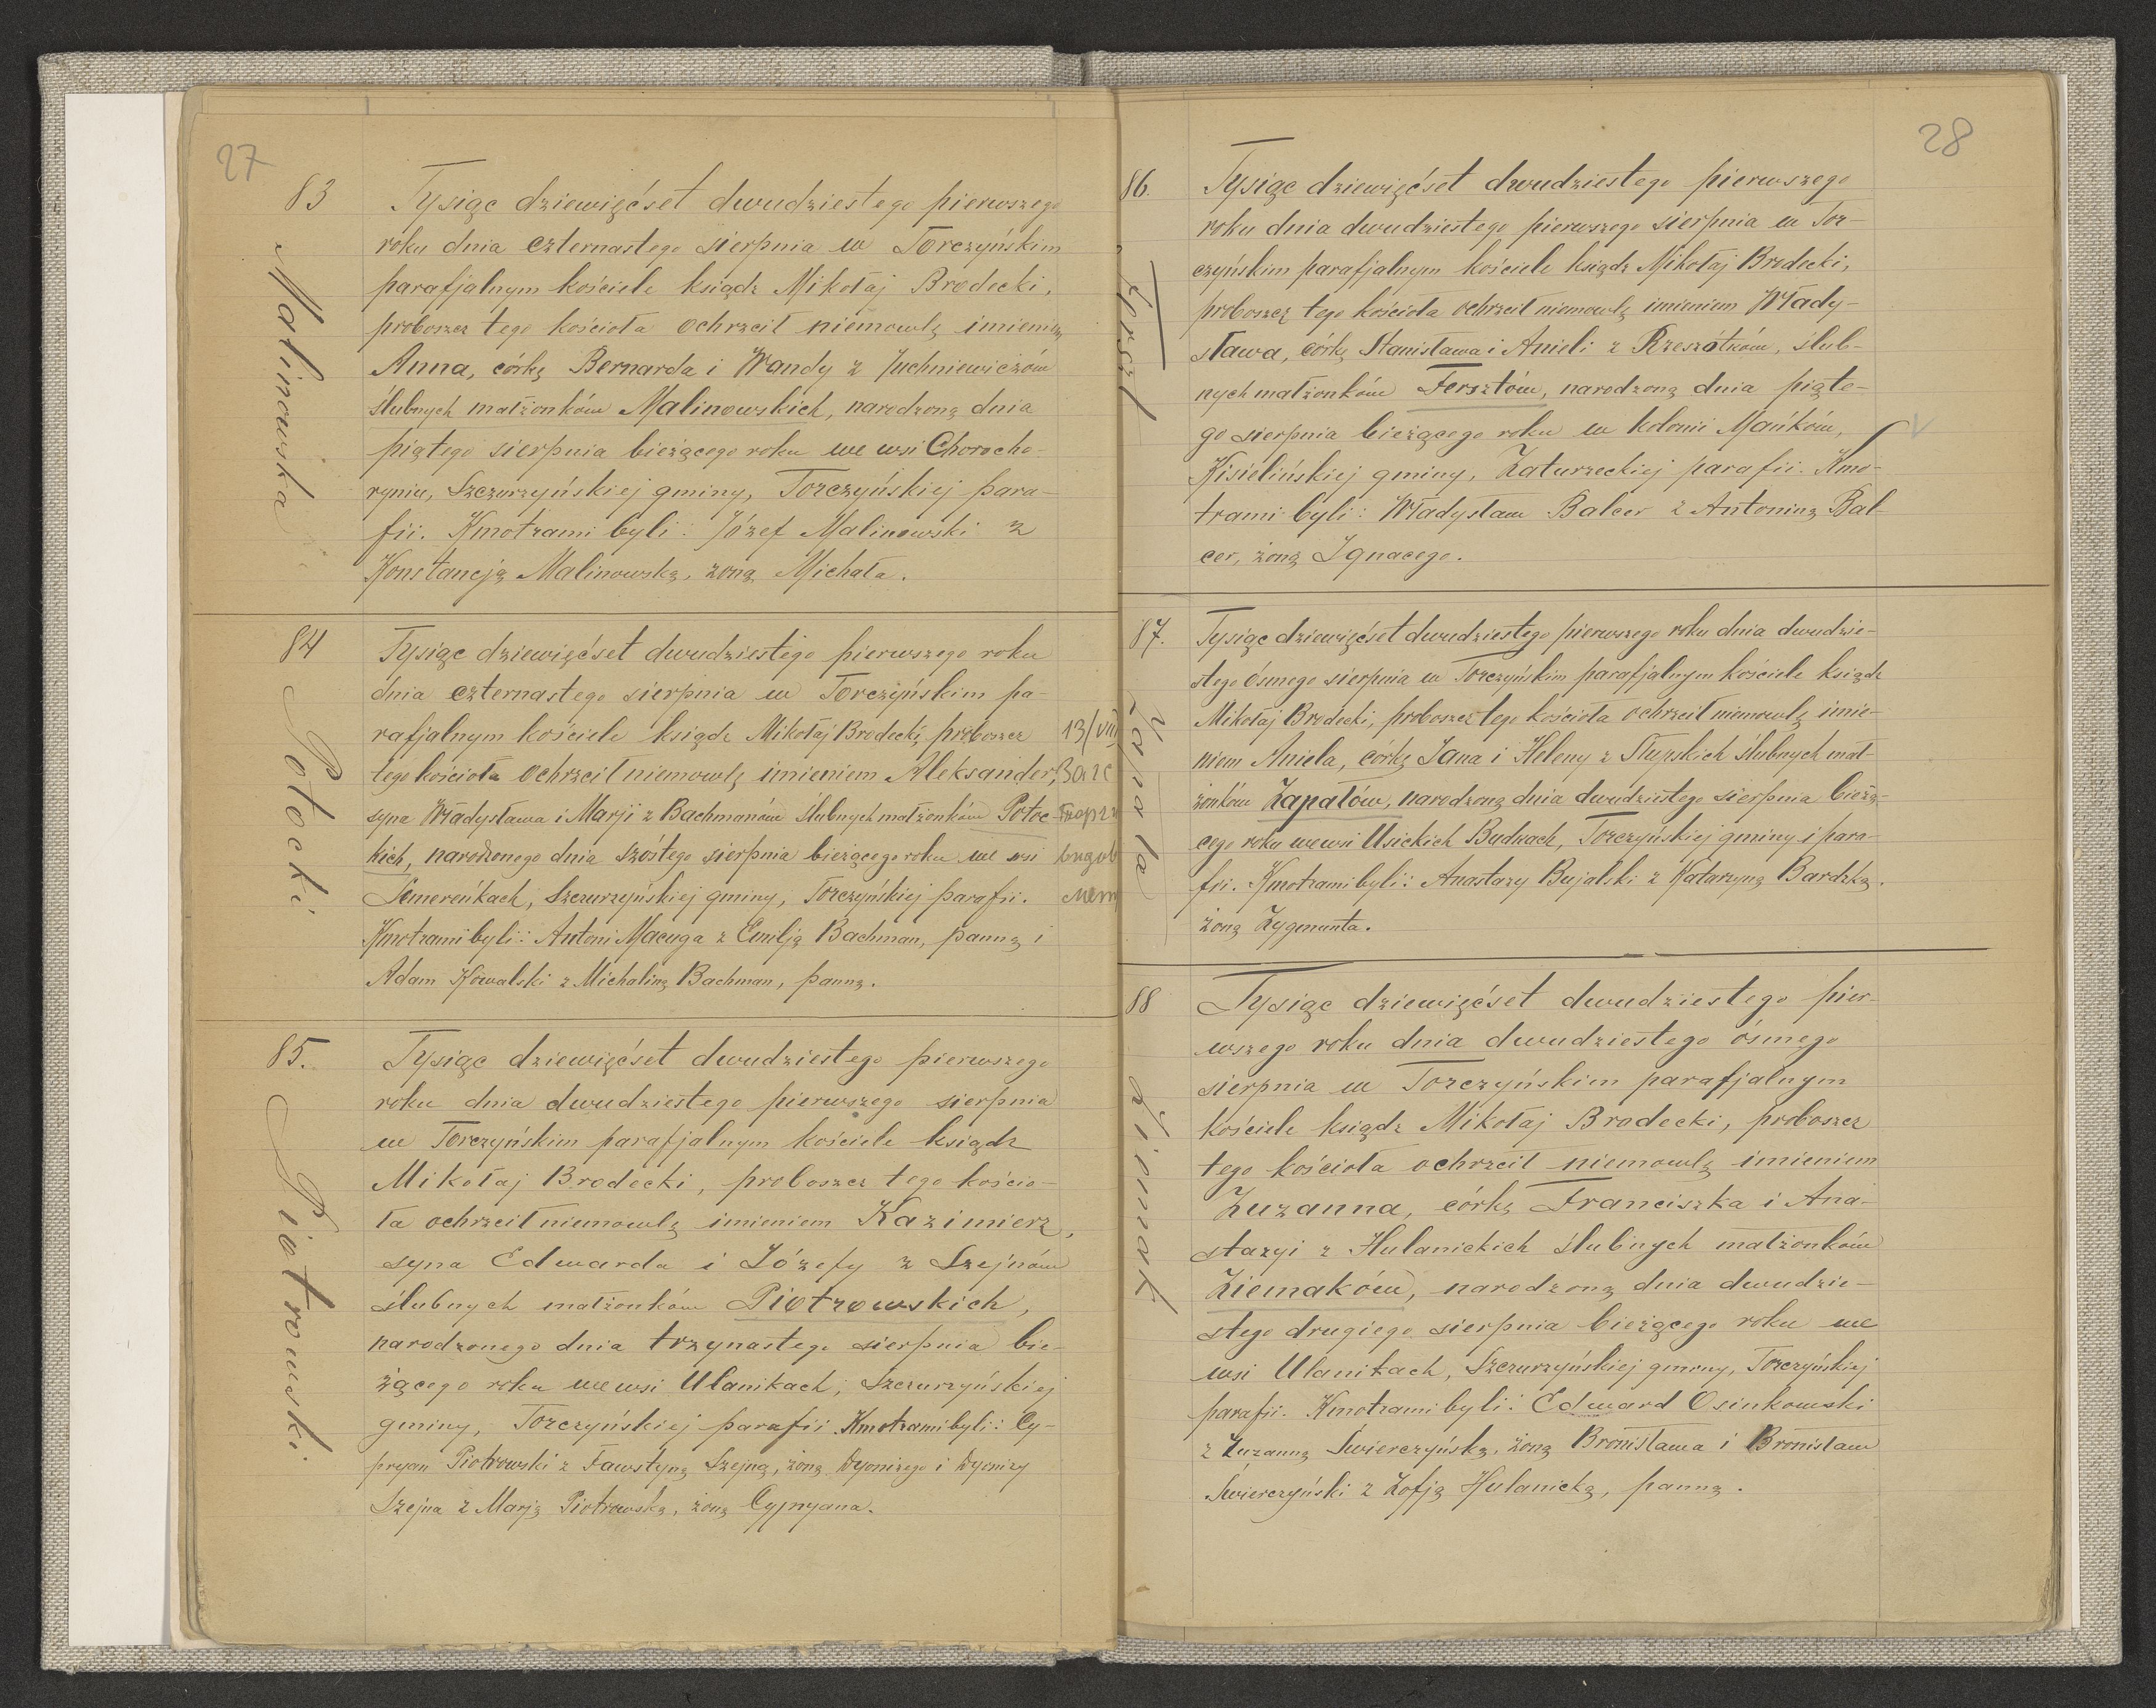 27
83
Malinowska
Tysiąc dziewięćset dwudziestego pierwszego
roku dnia czternastego sierpnia w Torczyńskim
parafjalnym kościele ksiądz Mikołaj Brodecki,
proboszcz tego kościoła ochrzcił niemowlę imieniem
Anna, córkę Bernarda i Wandy z Juchniewiczów
ślubnych małżonków Malinowskich, narodzoną dnia
piątego sierpnia bieżącego roku we wsi Chorocho-
ryniu, Szczurzyńskiej gminy, Torczyńskiej para-
fii. Kmotrami byli: Józef Malinowski z
Konstancją Malinowską, żoną Michała.
84
Potocki
Tysiąc dziewięćset dwudziestego pierwszego roku
dnia czternastego sierpnia w Torczyńskim pa-
rafjalnym kościele ksiądz Mikołaj Brodecki, proboszcz
tego kościoła ochrzcił niemowlę imieniem Aleksander,
syna Władysława i Marji z Bachmanów ślubnych małżonków Potoc-
kich, narodzonego dnia szóstego sierpnia bieżącego roku we wsi
Semerenkach, Szczurzyńskiej gminy, Torczyńskiej parafii.
Kmotrami byli: Antoni Macuga z Emilją Bachman, panną i
Adam Kowalski z Michaliną Bachman, panną.
13/VIII
85.
Piotrowski.
Tysiąc dziewięćset dwudziestego pierwszego
roku dnia dwudziestego pierwszego sierpnia
w Torczyńskim parafjalnym kościele ksiądz
Mikołaj Brodecki, proboszcz tego kościo-
ła ochrzcił niemowlę imieniem Kazimierz,
syna Edwarda i Józefy z Szejnów
ślubnych małżonków Piotrowskich,
narodzonego dnia trzynastego sierpnia bie-
żącego roku we wsi Ulanikach, Szczurzyńskiej
gminy, Torczyńskiej parafii. Kmotrami byli: Cy-
pryan Piotrowski z Fawstyną Szejną, żoną Dyonizego i Dyonizy
Szejna z Marją Piotrowską, żoną Cypryana.
28
86.
Ferszt
Tysiąc dziewięćset dwudziestego pierwszego
roku dnia dwudziestego pierwszego sierpnia w Tor-
czyńskim parafjalnym kościele ksiądz Mikołaj Brodecki,
proboszcz tego kościoła ochrzcił niemowlę imieniem Włady-
sława, córkę Stanisława i Anieli z Rzeszótków, ślub-
nych małżonków Fersztów, narodzoną dnia piąte-
go sierpnia bieżącego roku w kolonii Mańków,
Kisielińskiej gminy, Zaturzeckiej parafii. Kmo-
trami byli: Władysław Balcer z Antoniną Bal-
cer, żoną Ignacego.
87.
Zapała
Tysiąc dziewięćset dwudziestego pierwszego roku dnia dwudzie-
stego ósmego sierpnia w Torczyńskim parafjalnym kościele ksiądz
Mikołaj Brodecki, proboszcz tego kościoła ochrzcił niemowlę imie-
niem Aniela, córkę Jana i Heleny z Słupskich ślubnych mał-
żonków Zapałów, narodzoną dnia dwudziestego sierpnia bieżą-
cego roku we wsi Usickich Budkach, Torczyńskiej gminy i para-
fii. Kmotrami byli: Anastazy Bujalski z Katarzyną Bardzką,
żoną Zygmunta.
88
Ziemak
Tysiąc dziewięćset dwudziestego pier-
wszego roku dnia dwudziestego ósmego
sierpnia w Torczyńskim parafjalnym
kościele ksiądz Mikołaj Brodecki, proboszcz
tego kościoła ochrzcił niemowlę imieniem
Zuzanna, córkę Franciszka i Ana-
stazyi z Hulanickich ślubnych małżonków
Ziemaków, narodzoną dnia dwudzie-
stego drugiego sierpnia bieżącego roku we
wsi Ulanikach, Szczurzyńskiej gminy, Torczyńskiej
parafii. Kmotrami byli: Edward Osinkowski
z Zuzanną Świerczyńską, żoną Bronisława i Bronisław
Świerczyński z Zofją Hulanicką, panną.